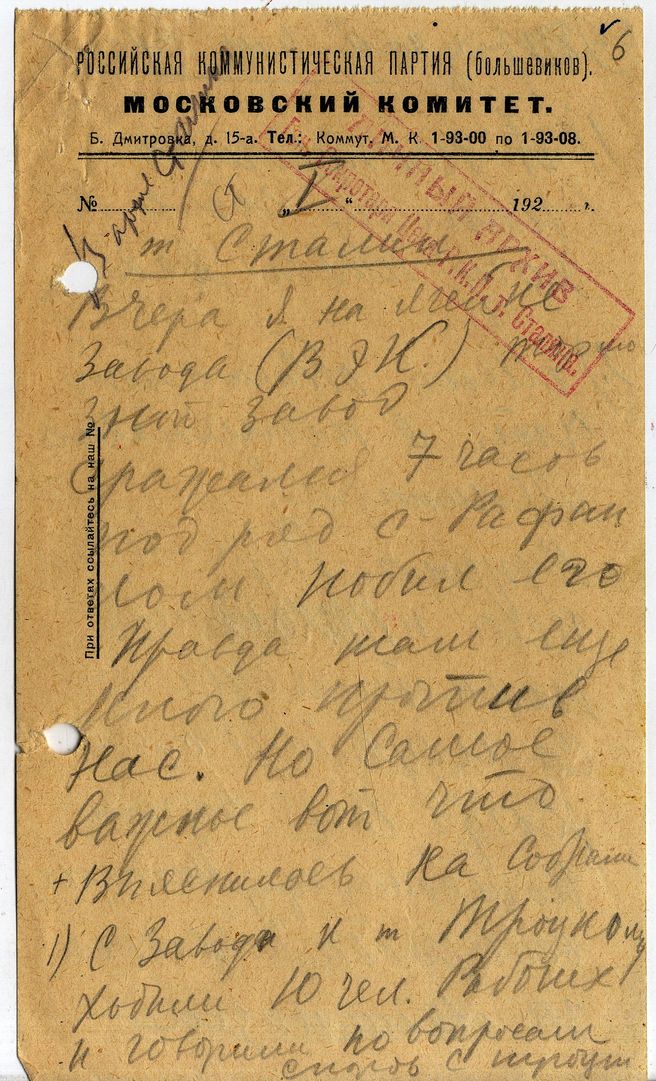 6
РОССИЙСКАЯ КОММУНИСТИЧЕСКАЯ ПАРТИЯ (большевиков).
МОСКОВСКИЙ КОМИТЕТ.
Б. Дмитровка, д. 15-а. Тел.: Коммут. М. К. 1-93-00 по 1-93-08.
№ „I“ 192 г.
В архив Сталина
АРХИВ
т. Сталин
Вчера я на ячейке
Завода (В Э К.)
завод
Сражался 7 часов
под ряд с Рафаи
лом побил его
Правда там еще
много против
Нас. Но Самое
важное вот что
+ Выяснилось на Собрании
1) С Завода к т Троцкому
ходили 10 чел. Рабочих
и говорили по вопросам
споров с троцк
При ответах ссылайтесь на наш №